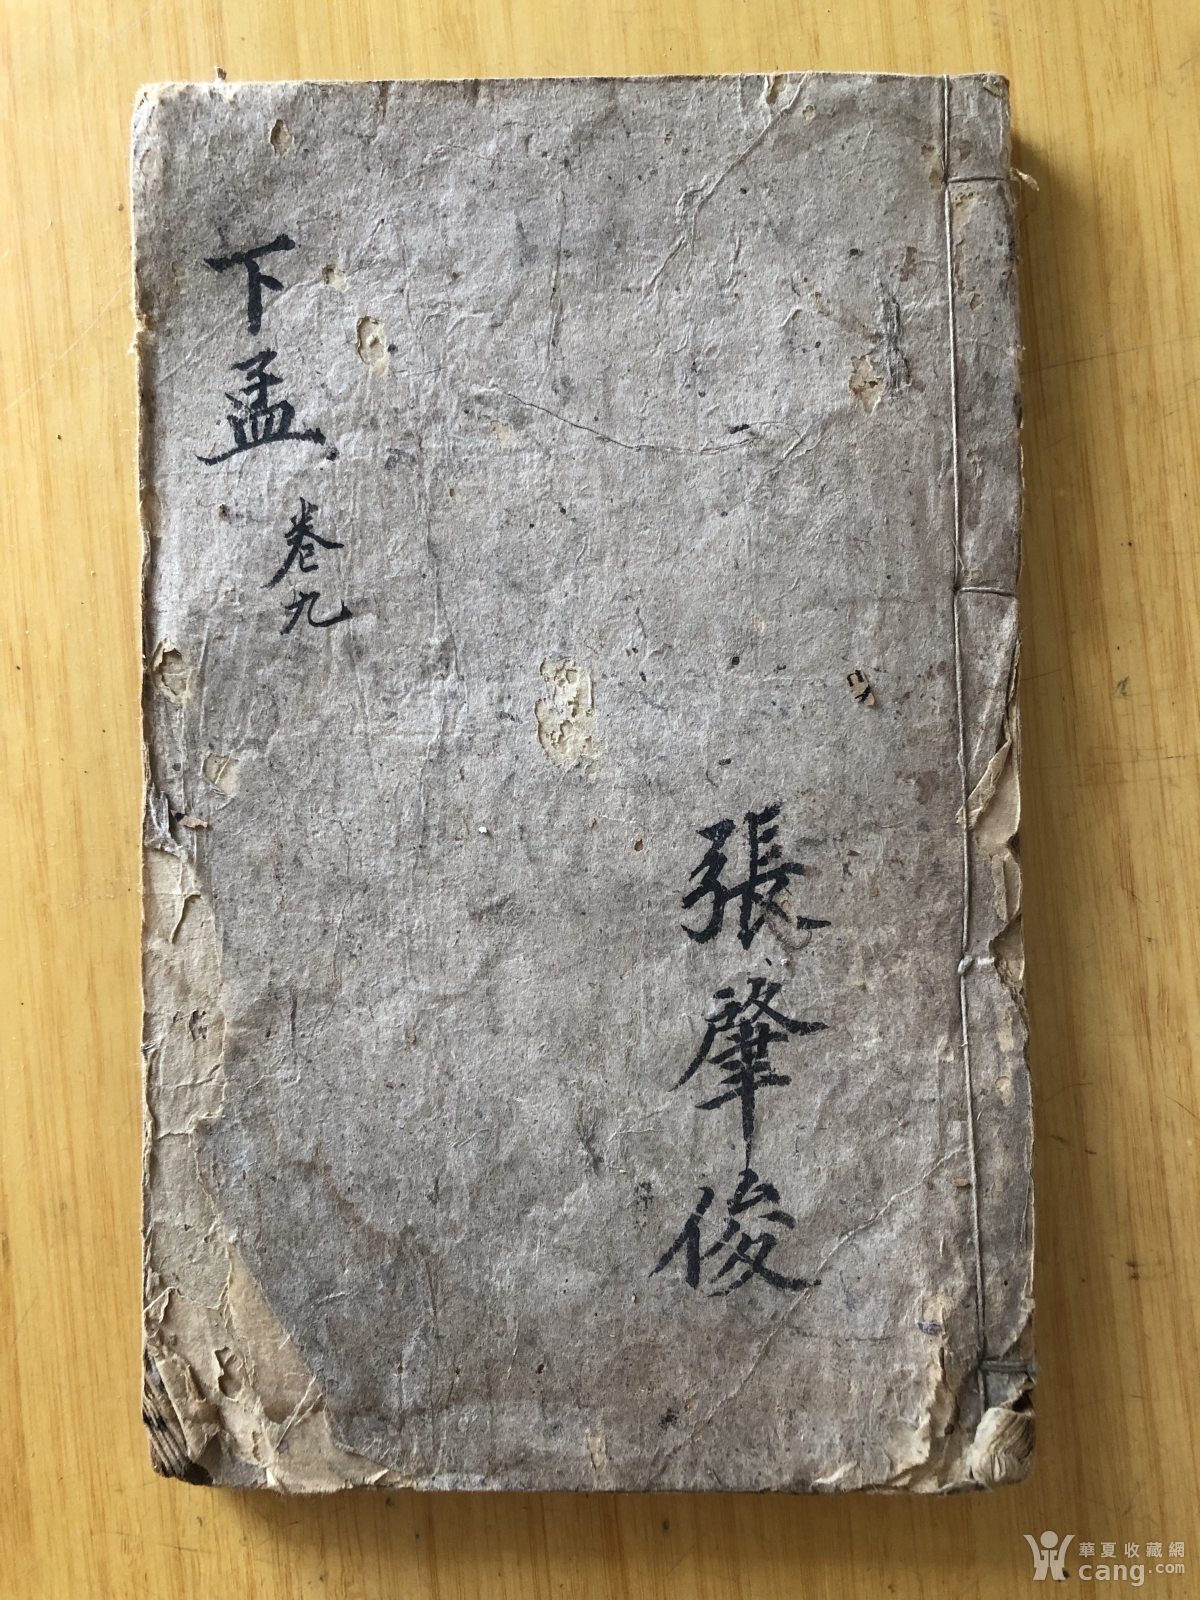 下孟
卷九
張肇俊
華夏收藏網
cang.com